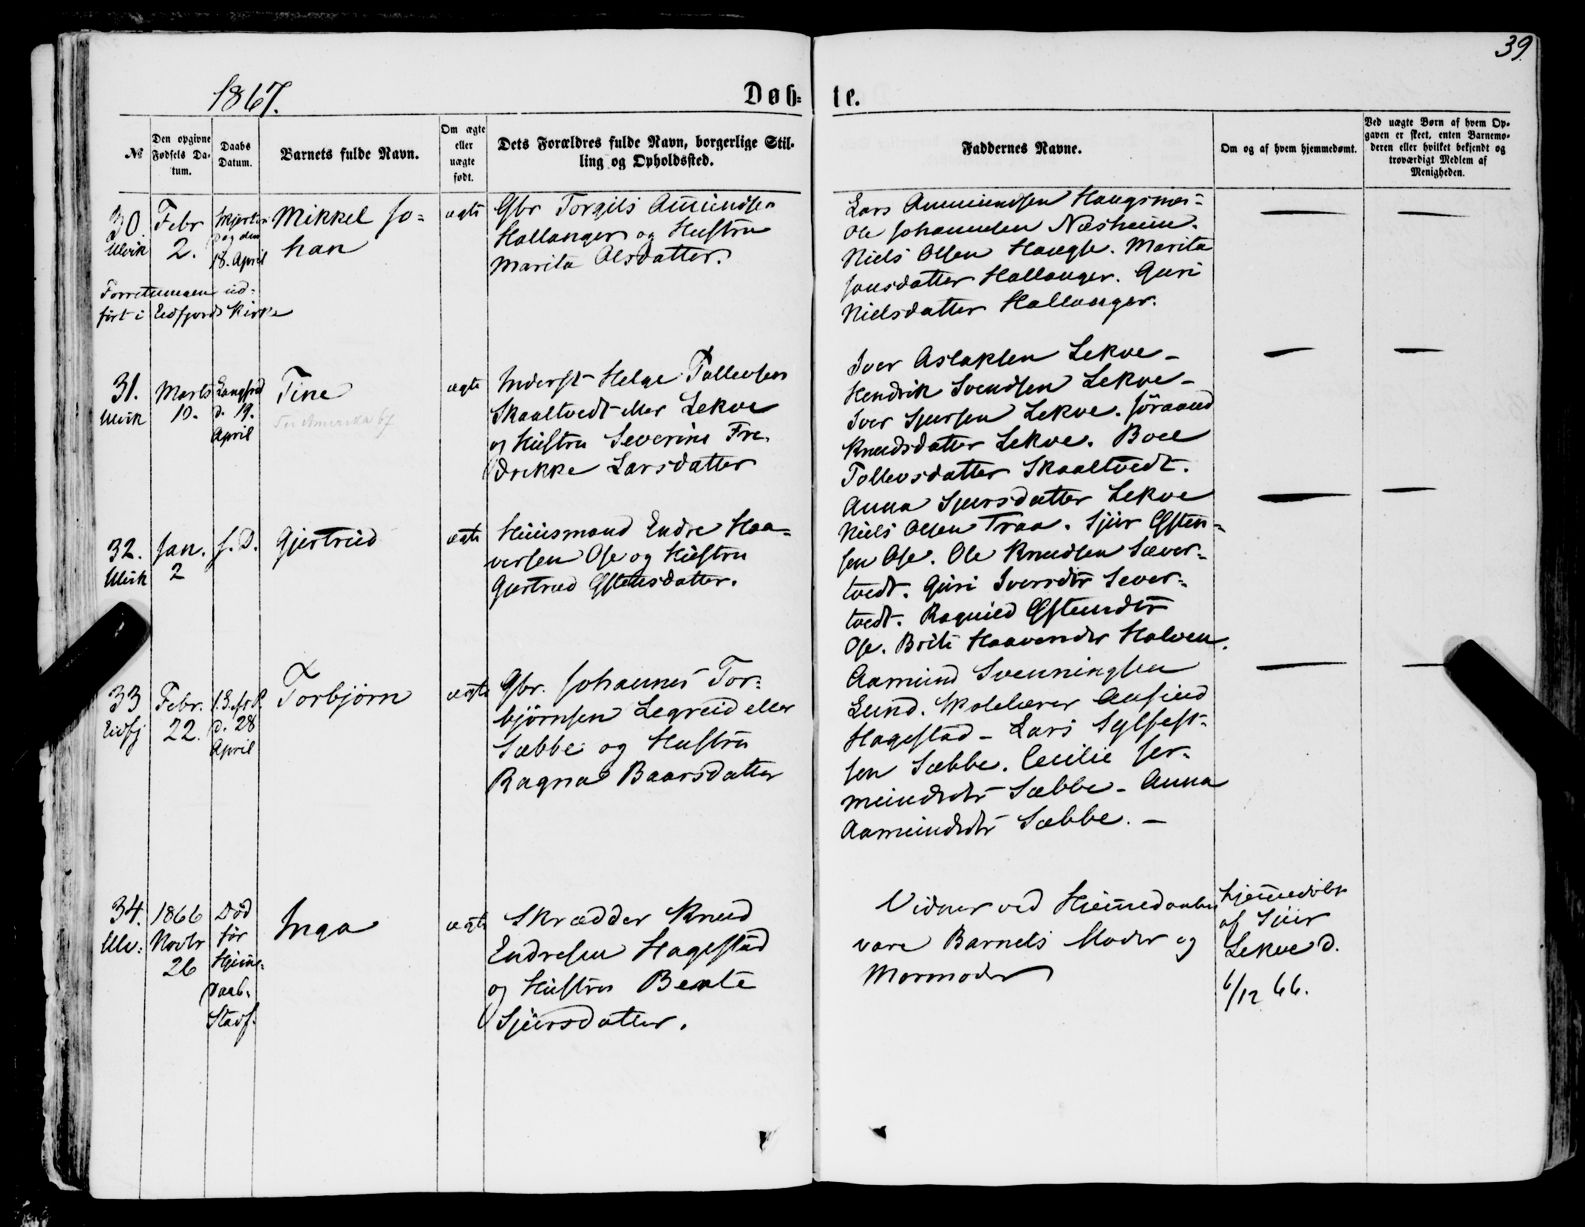 39.
1867.
Døb= te.
№
Den opgivne Fødsels Datum.
Daabs Datum.
Barnets fulde Navn.
Om ægte eller uægte født.
Dets Forældres fulde Navn, borgerlige Stilling og Opholdssted.
Faddernes Navne.
Om og af hvem hjemmedømt.
Ved uægte Børn af hvem Opgaven er skeet, enten Barnemoderen eller hvilket bekjendt og troværdigt Medlem af Menigheden.
30.
Ulvik
Febr
2.
Skjertorsdag den
18. April
Mikkel Jo=
han
ægte
Gbr Torgils Amundsen
Hallanger og Hustru
Marita Olsdatter.
Lars Ammundsen Haugsnes=
Ole Johannesen Næsheim.
Niels Olsen Haugse. Marita
Jonsdatter Hallanger. Guri
Nielsdatter Hallanger.
Forretningen ud=
ført i Eidfjords Kirke
31.
Ulvik
Marts
10.
Langfred
d. 19.
April
Tine
Til Amerika 67
ægte
Inderst Helge Tollevsen
Skaaltvedt eller Lekve
og Hustru Severine Fre=
drikke Larsdatter
Iver Aslaksen Lekve -
Hendrik Svendsen Lekve -
Iver Sjursen Lekve. Jøraand
Knudsdatter Lekve. Boel
Tollevsdatter Skaaltvedt.
Anna Sjursdatter Lekve
32.
Ulvik
Jan.
2
f. D.
Gjertrud
ægte
Huusmand Endre Haa=
versen Ose og Hustru
Gjertrud Østensdatter.
Niels Olsen Traa. Sjur Østen=
sen Ose. Ole Knudsen Sæver=
tvedt. Guri Iversdtr Sever=
tvedt. Ragnild Østensdtr
Ose. Brita Haaversdtr Halven.
33
Eidfj
Febr.
22.
d. 28
April
Torbjørn
ægte
Gbr. Johannes Tor=
bjørnsen Legreid eller
Sæbbe og Hustru
Ragna Baarsdatter
Aamund Svenningsen
Lund. Skolelærer Amfind
Hagestad - Lars Sylfest=
sen Sæbbe. Cecilie Ger=
mundsdtr Sæbbe - Anna
Aamundsdtr Sæbbe. -
34.
Ulv:
1866
Novbr
26
Død
før
Hjem=
daab=
Stadf.
Inga
ægte
Skrædder Knud
Endresen Hagestad
og Hustru Bente
Sjursdatter.
Vidner ved Hjemmedaaben
vare Barnets Moder og
Mormoder
hjemmedøbt
af Sjur
Lekve d.
6/12 66.